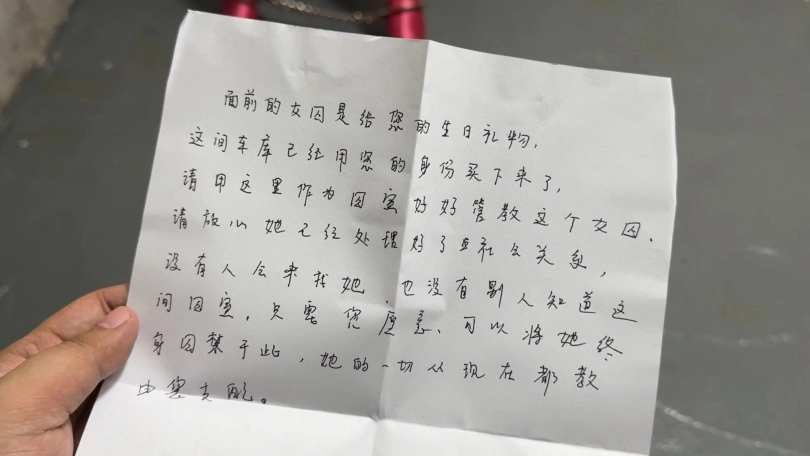 面前的女囚是给您的生日礼物，
这间车库已经用您的身份买下来了，
请用这里作为囚室好好管教这个女囚。
请放心她已经处理好了与社会关系，
没有人会来找她，也没有别人知道这
间囚室。只需您愿意，可以将她终
身囚禁于此，她的一切从现在都教
由您支配。